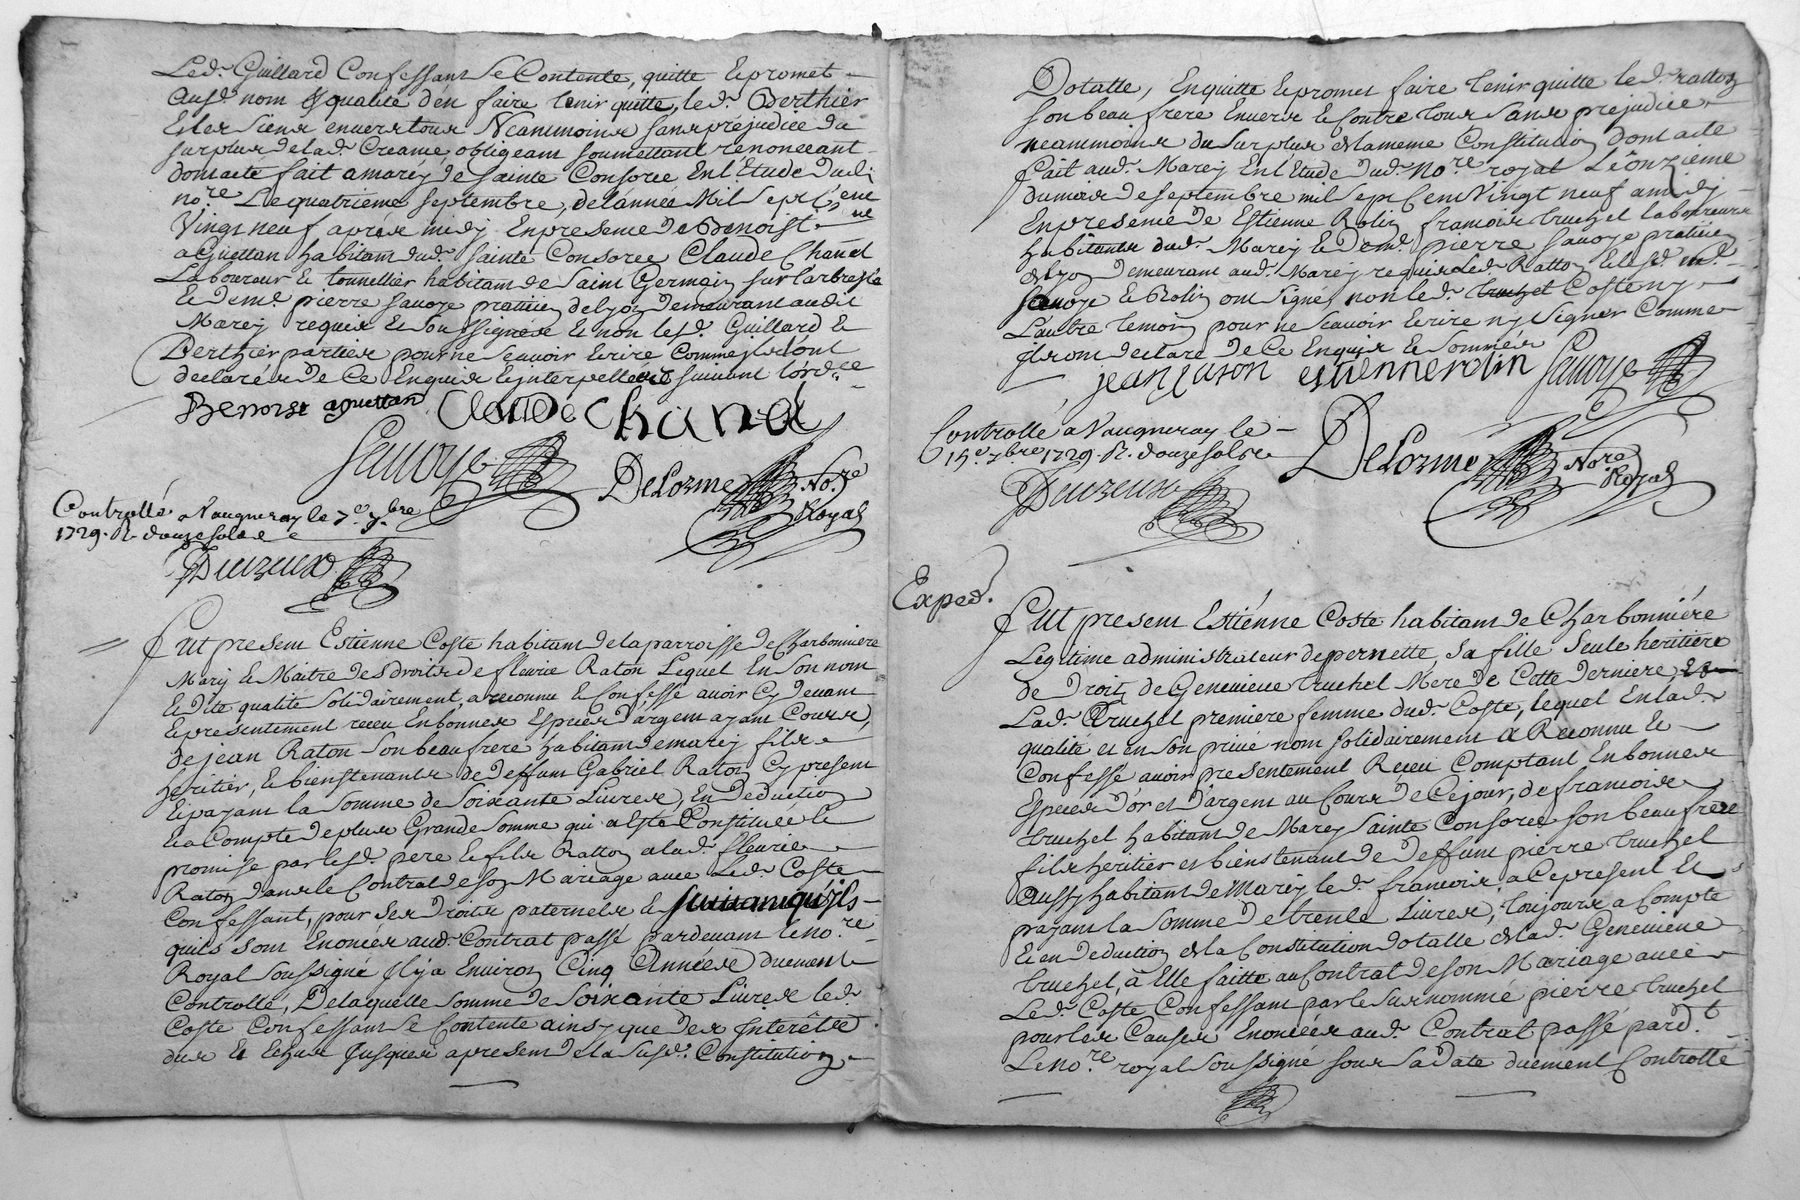 Led.^r Guillard Confessant se Contente, quitte et promet
aud.^t nom & qualité d'en faire tenir quitte, led.^r Berthier
Et les siens envers tous Neanmoins sans préjudice du
surplus de lad.^e Creance, obligeant soumettant renonceant
dont acte fait a marcy de sainte Consorce En l'Etude dudi
no.^re Le quatrieme septembre, de l'année Mil sept Cent
Vingt neuf apres midy En presence de Benoist
aGuettan habitant dud. sainte Consorce Claude Chanal
Laboureur & tonnellier habitant de Saint Germain sur l'arbresle
& de m.^e pierre savoye praticien de lyon demeurant audit
Marcy requis Et soussignés Et non lesd.^s Guillard &
Berthier parties pour ne scavoir Ecrire Comme ils l'ont
declarés de Ce Enquis & interpellés suivant l'ord.^ce
Benoist aguettan Claude Chanal
Savoye DeLorme No.^re
Royal
Controllé a Vaugneray le 7.^e 7.^bre
1729. R. douze sols
Deuzeux
Fut present Estienne Coste habitant de la parroisse de Charbonniere
Mary & Maitre des droits de fleurie Raton Lequel En son nom
& dite qualité solidairement, a reconnu & Confessé avoir Cy devant
Et presentement receu En bonnes Especes d'argent ayant Cours,
de jean Raton son beaufrere habitant de marcy fils
heritier, & bienstenants de deffunt Gabriel Raton Cy present
Et payant la somme de soixante Livres, En deduction
Et a Compte de plus Grande somme qui a este Constituée &
promise par lesd. pere & fils Ratton a lad.^e fleurie
Raton dans le Contrat de son Mariage avec Led.^r Coste
Confessant, pour ses droits paternels & suivant qu'ils
quils sont Enoncés aud.^r Contrat passé pardevant le no.^re
Royal soussigné Il y a Environ Cinq Années duement
Controllé, De laquelle somme de soixante Livres led.^r
Coste Confessant se Contente ainsy que des Interêts
dus & Echus Jusques a present de la susd.^e Constitution
Dotalle, En quitte & promet faire tenir quitte led.^r ratton
son beaufrere Envers & Contre tous sans prejudice
neanmoins du surplus de la meme Constitution dont acte
Fait aud.^r Marcy En l'Etude dud.^r No.^re royal Le onzieme
du mois de septembre mil sept Cent Vingt neuf a midy
En presence de Estienne Rolin francois truchet laboureurs
habitants dud.^r Marcy & de m.^e pierre savoye praticien
de lyon demeurant aud.^r Marcy requis Led.^r Ratton & led. m.^e
savoye & Rolin ont signés non led.^r truchet Coste ny
L'autre temoin pour ne scavoir Ecrire ny Signer Comme
ils ont declaré de Ce Enquis & sommés
estienne rolin Savoye
Controllé a Vaugneray le
15.^e 7.^bre 1729. R. douze sols
Deuzeux
DeLorme No.^re
Royal
Exped.
Fut present Estiénne Coste habitant de Charbonniére
Legitime administrateur de pernette, sa fille seule heritiere
de droit de Genevieve truchet Mere de Cette Derniere,
Lad.^e truchet premiere femme dud.^r Coste, lequel En lad.^e
qualité et en son privé nom solidairement a Reconnu &
Confessé avoir presentement Receu Comptant En bonnes
Especes d'or et d'argent au Cours de Ce jour, de francois
truchet habitant de Marcy sainte Consorce son beaufrere
fils heritier et bienstenant de deffunt pierre truchet
aussy habitant de Marcy led.^r francois, a Ce present Et
payant la somme de trente Livres, toujours a Compte
Et en deduction de la Constitution dotalle de lad.^e Genevieve
truchet, a Elle faitte au Contrat de son Mariage avec
Led.^r Coste, Confessant par le surnommé pierre truchet
pour les Causes Enoncées aud.^r Contrat passé pard.^t
Le no.^re royal soussigné sous sa Date duement Controllé